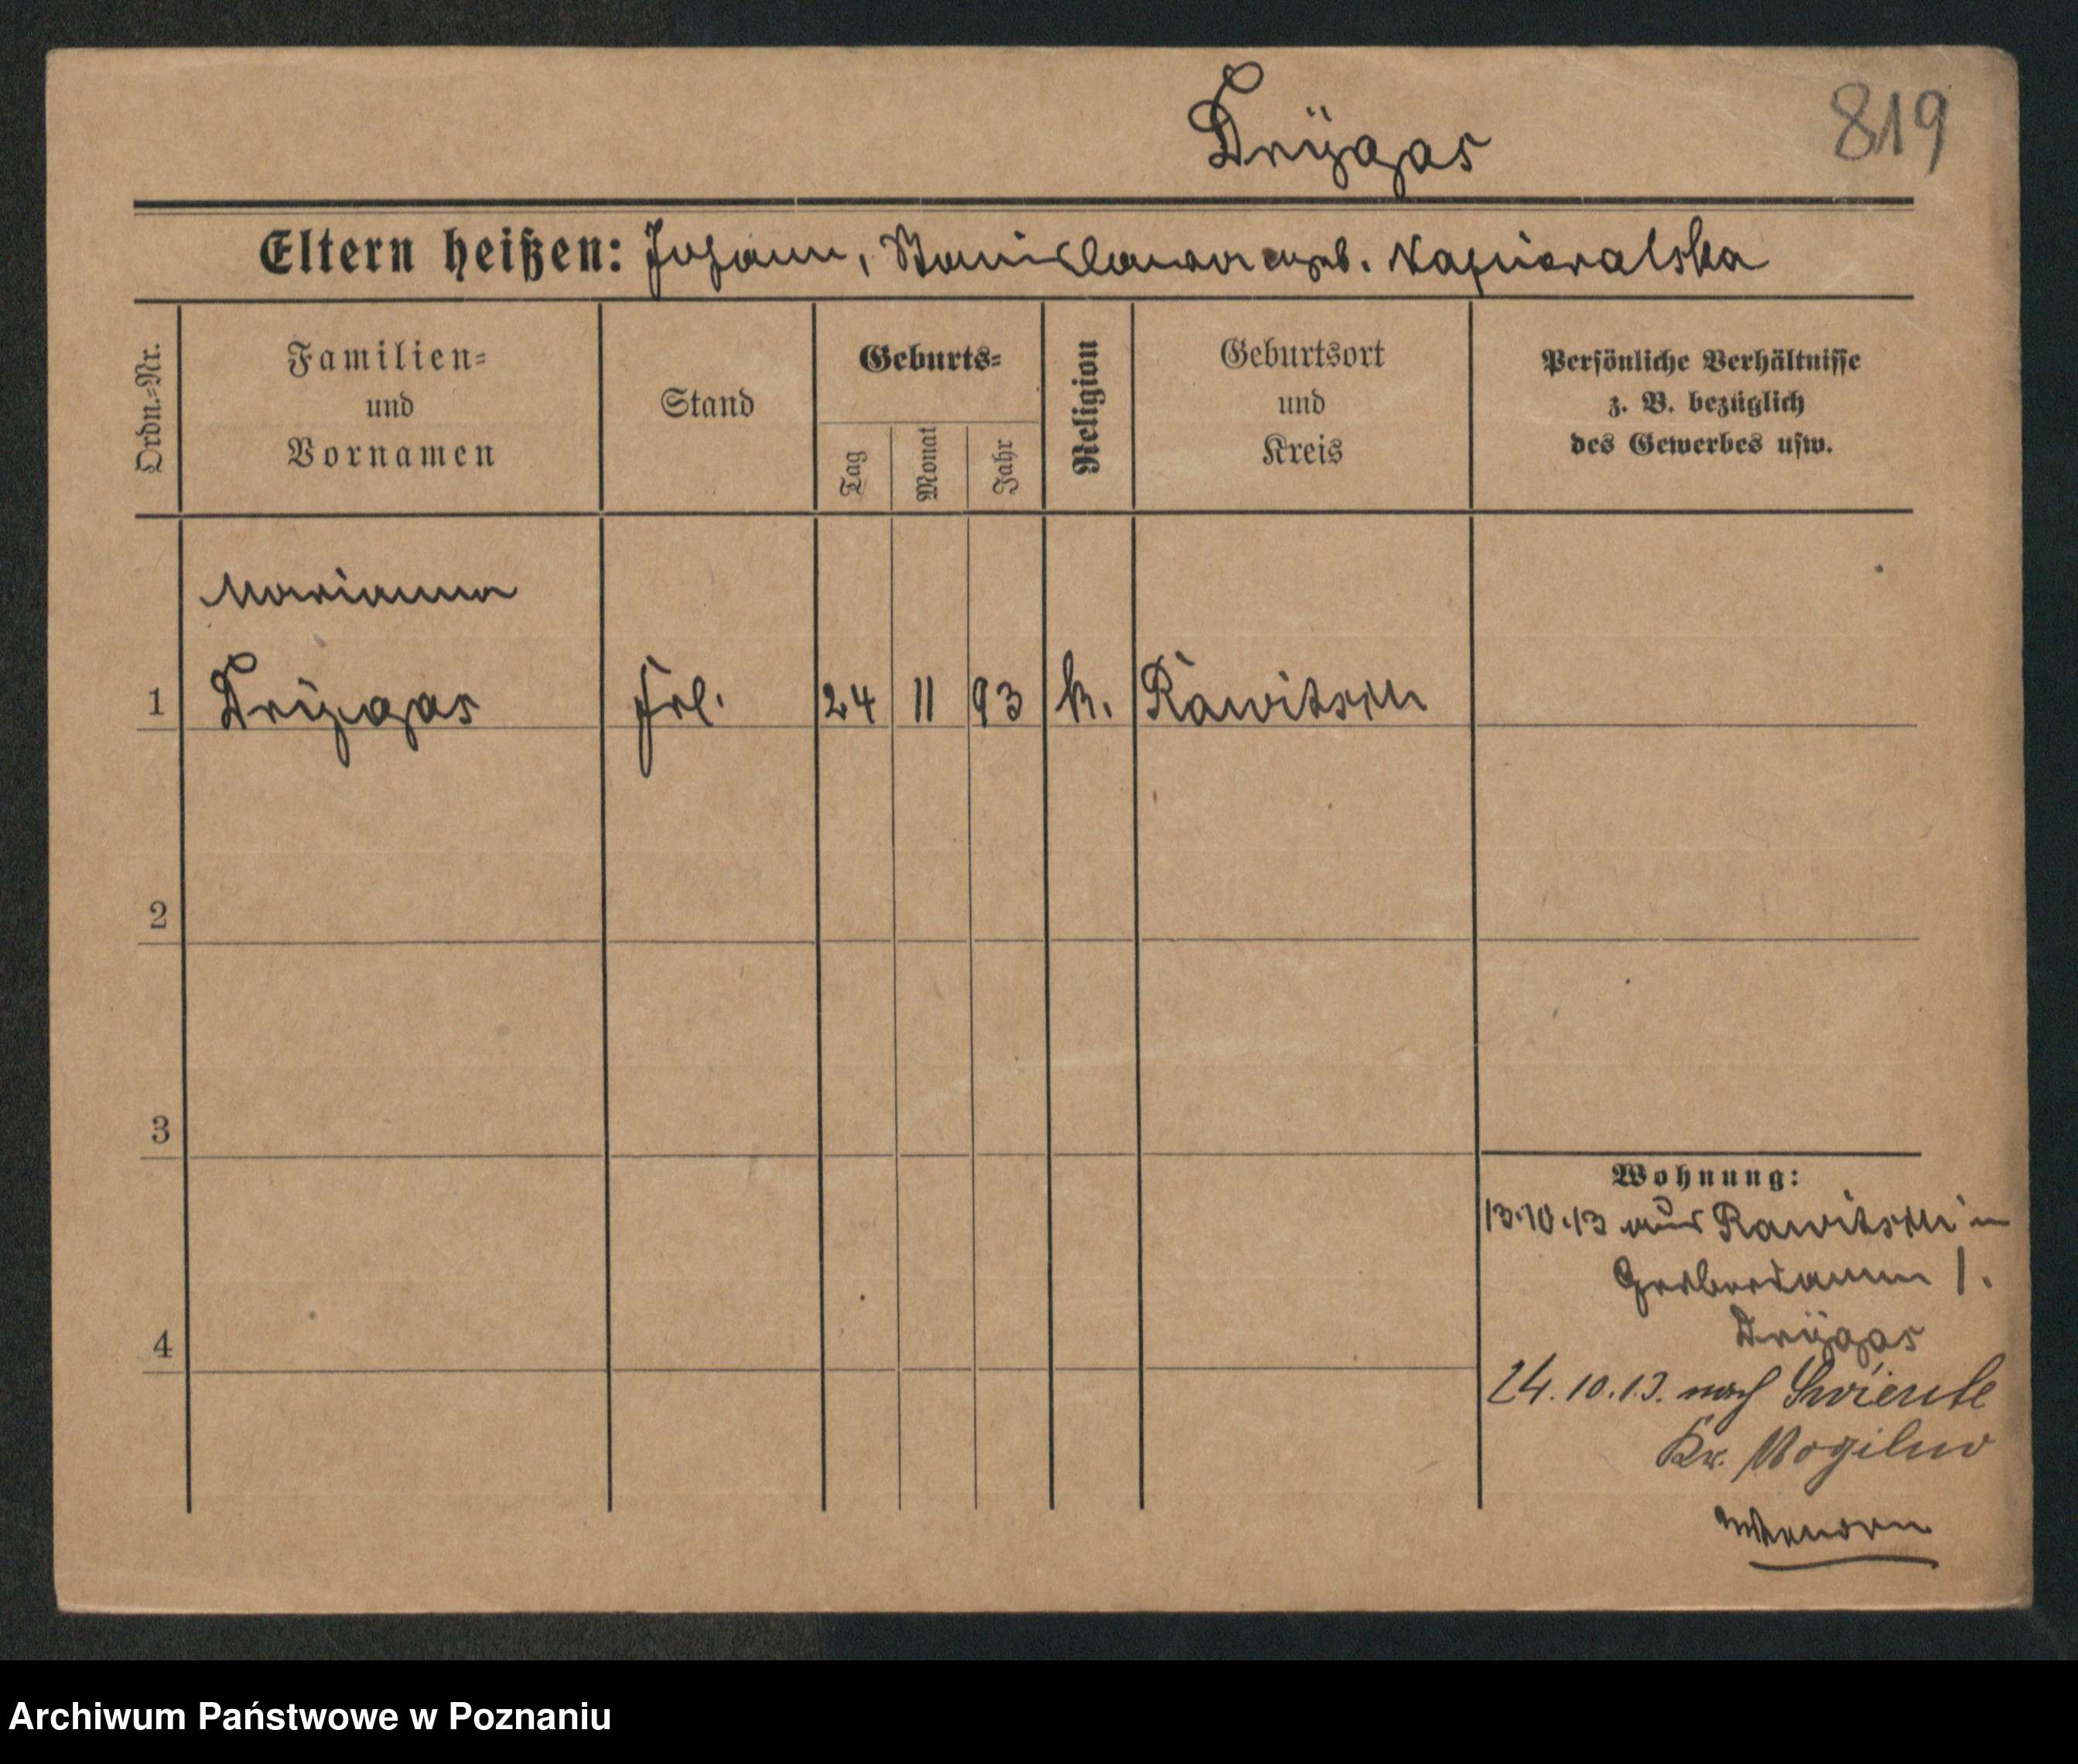 Drÿgas
819
Eltern heißen: Johann, Stanislawa geb. Kapieralska
Ordn.-Nr.
Familien-
und
Vornamen
Stand
Geburts-
Tag
Monat
Jahr
Religion
Geburtsort
und
Kreis
Persönliche Verhältnisse
z. B. bezüglich
des Gewerbes usw.
Marianna
1 Drÿgas Frl. 24 11 93 k. Rawitsch
2
3
4
Wohnung:
13.10.13 aus Rawitsch in
Gerberdamm 1.
Drÿgas
24.10.13. nach
Kr. Mogilno
Archiwum Państwowe w Poznaniu